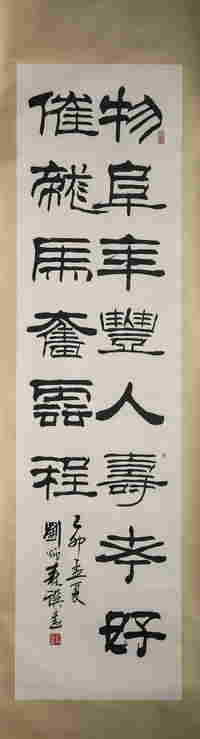 物阜年豐人壽孝好
催龍馬奮雲程
乙卯孟夏
劉炳森